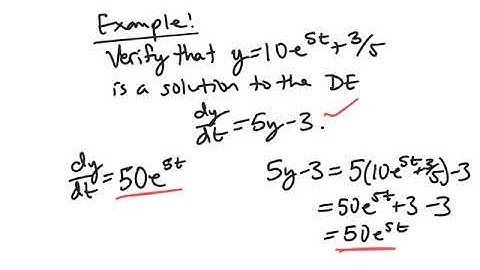 Example!
Verify that y=10e^{5t}+3/5
is a solution to the DE
dy/dt=5y-3.
dy/dt=50e^{5t}
5y-3=5(10e^{5t}+3/5)-3
=50e^{5t}+3-3
=50e^{5t}